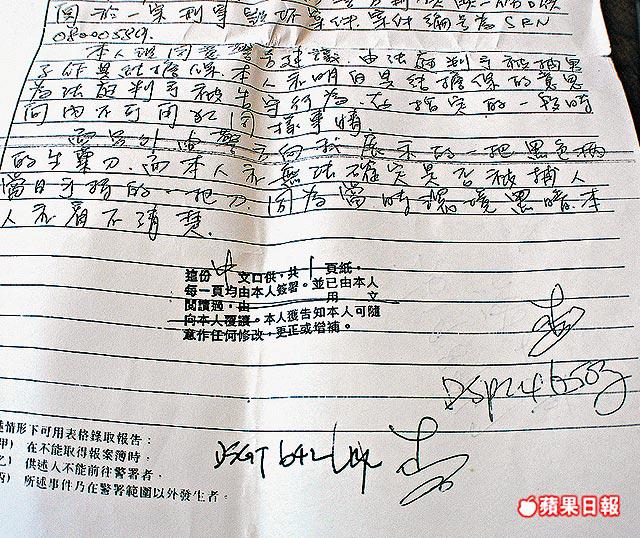 因於一單刑事毀坏案件,案件編号為SRN
08000589.
本人現同意警方建議,由法庭判予被捕男
子作具結擔保.本人亦明白具結擔保的意思
為法庭判予被告守行為,在指定的一段時
間內不可再犯同樣事情.
而另外,由警方向我展示的一把黑色柄
的生菓刀,而本人亦無法確定是否被捕人
當日手持的一把刀.因為當時環境黑暗.本
人亦看不清楚.
這份中文口供,共1頁紙,
每一頁均由本人簽署。並已由本人
閱讀過,由 用 文
向本人覆讀。本人獲告知本人可隨
意作任何修改,更正或增補。
情形下可用表格錄取報告:
甲) 在不能取得報案簿時。
乙) 供述人不能前往警署者。
丙) 所述事件乃在警署範圍以外發生者。
蘋果日報